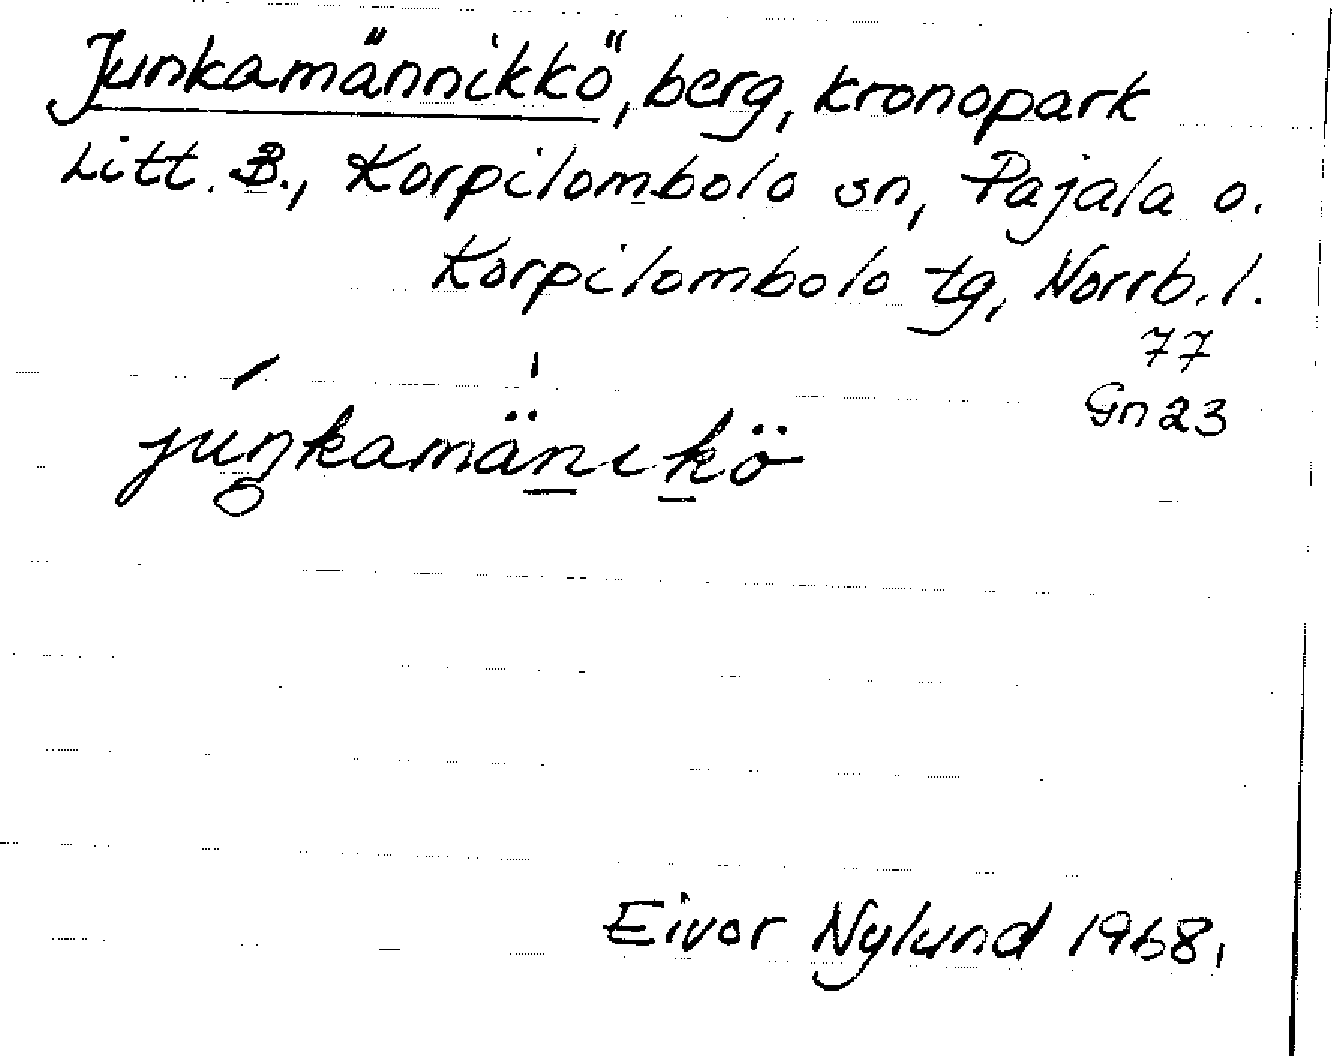 Junkamännikkö, berg, kronopark
Litt. B., Korpilombolo sn, Pajala o.
Korpilombolo tg, Norrb. l.
77
Gn 23
junkamänikö
Eivor Nylund 1968.